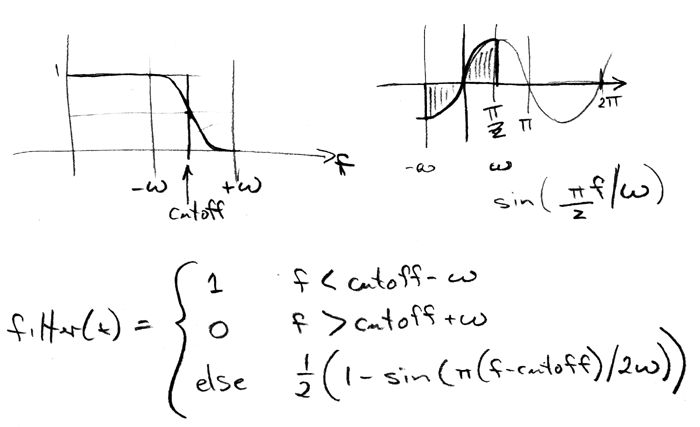 1
f
-ω +ω
cutoff
π/2 π 2π
-ω ω
sin(π/2 f/ω)
filter(x) = { 1 f < cutoff-ω
0 f > cutoff+ω
else 1/2(1-sin(π(f-cutoff)/2ω))